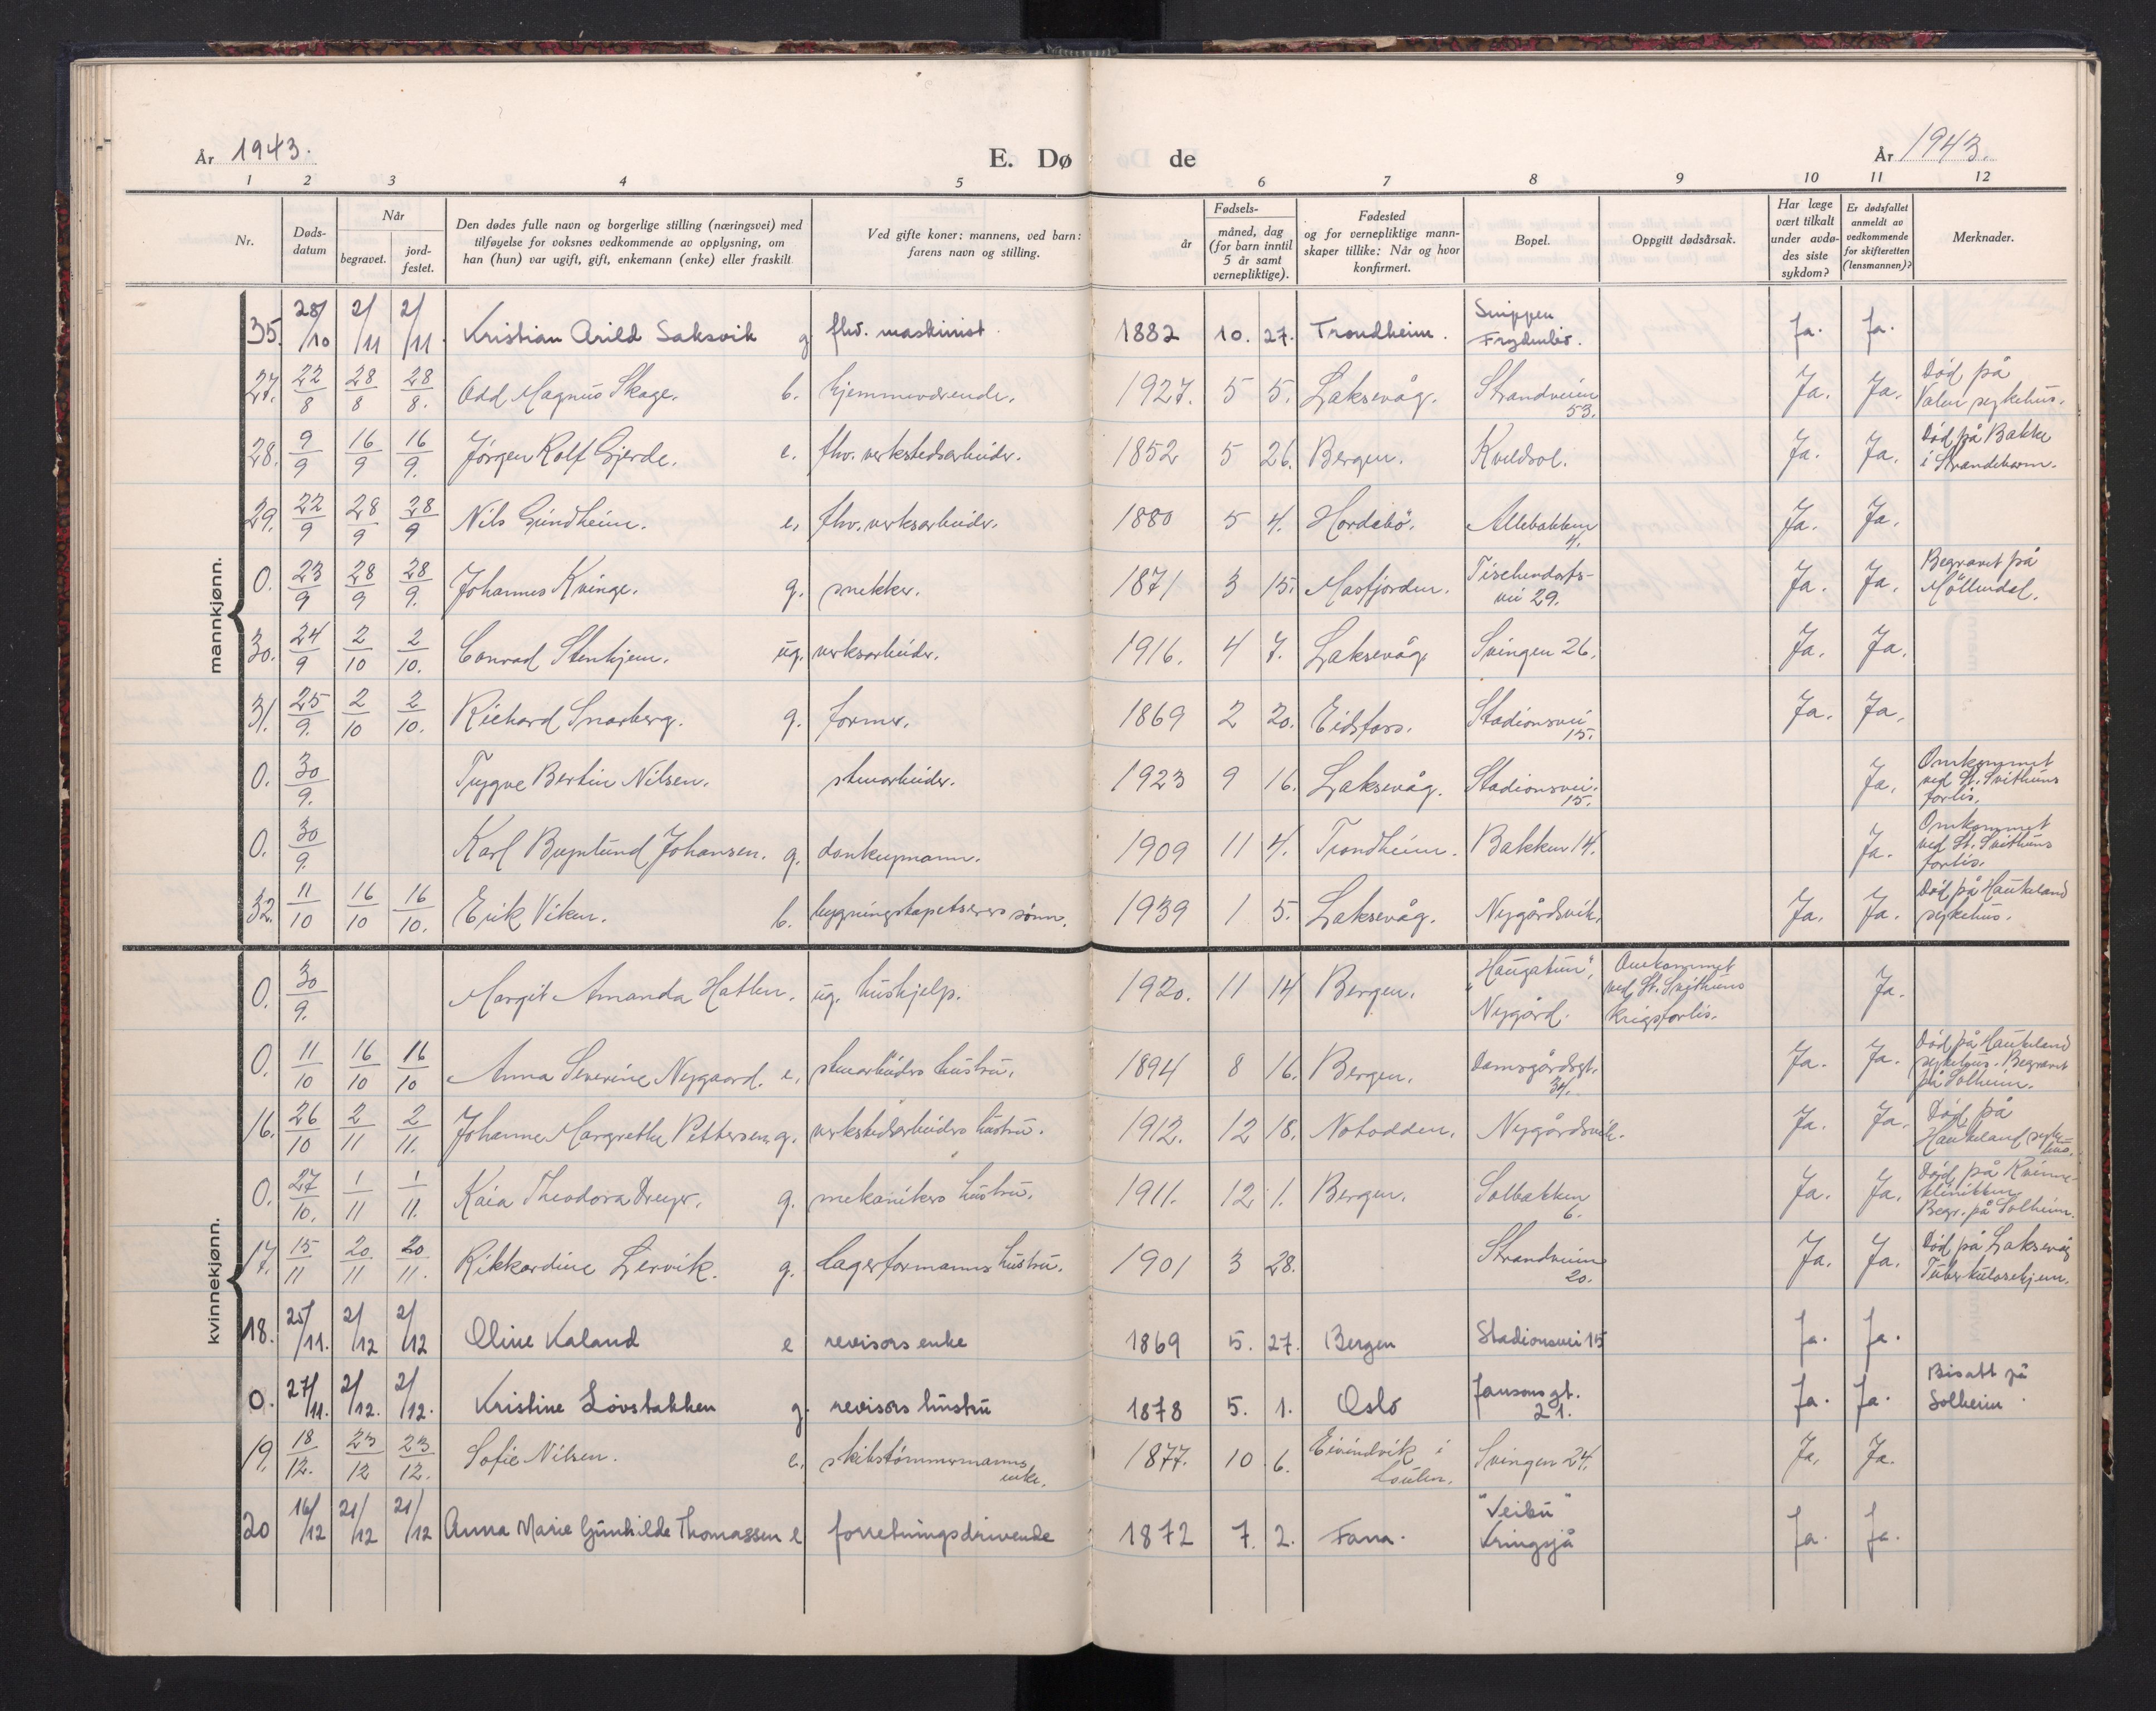 År 1943.
E. Dø de
År 1943.
1 2 3 4 5 6 7 8 9 10 11 12
Nr.
Døds-
datum
Når
begravet.
jord-
festet.
Den dødes fulle navn og borgerlige stilling (næringsvei) med
tilføyelse for voksnes vedkommende av opplysning, om
han (hun) var ugift, gift, enkemann (enke) eller fraskilt.
Ved gifte koner: mannens, ved barn:
farens navn og stilling.
Fødsels-
år
måned, dag
(for barn inntil
5 år samt
vernepliktige).
Fødested
og for vernepliktige mann-
skaper tillike: Når og hvor
konfirmert.
Bopel.
Oppgitt dødsårsak.
Har læge
vært tilkalt
under avdø-
des siste
sykdom?
Er dødsfallet
anmeldt av
vedkommende
for skifteretten
(lensmannen)?
Merknader.
mannkjønn.
35. 28/10 2/11 2/11 Kristian Arild Saksvik g. fhv. maskinist. 1882 10. 27. Trondheim. Snippen Frydenbø. Ja. Ja.
27. 22/8 28/8 28/8. Odd Magnus Skage. b. hjemmeværende. 1927. 5 5. Laksevåg. Strandveien 53. Ja. Ja. Død på
sykehus.
28. 9/9 16/9 16/9. Jørgen Rolf Gjerde. e. fhv. verkstedsarbeider. 1852 5 26. Bergen. Kveldsol. Ja. Ja. Død på Bakke
i Strandebarm.
29. 22/9 28/9 28/9 Nils Grindheim. e. fhv. verksarbeider. 1880 5 4. Hordabö. 4. Ja. Ja.
0. 23/9 28/9 28/9. Johannes Kvinge. g. snekker. 1871 3 15. Masfjorden. Tischendorfs-
vei 29. Ja. Ja. Begravet på
Möllendal.
30. 24/9 2/10 2/10. Conrad Stenhjem. ug. verksarbeider. 1916. 4 7. Laksevåg. Svingen 26. Ja. Ja.
31. 25/9. 2/10 2/10. Richard Snarberg. g. former. 1869 2 20. Eidsfoss. Stadionsvei
15. Ja. Ja.
0. 30/9. Trygve Bertin Nilsen. stuearbeider. 1923 9 16. Laksevåg. Stadionsvei.
15. Ja. Omkommet
ved St. Svithuns
forlis.
0. 30/9. Karl Johansen. g. donkeymann. 1909 11 4. Trondheim. Bakken 14. Ja. Omkommet
ved St. Svithuns
forlis.
32. 11/10 16/10 16/10. Erik Viken. b. bygningstapetserers sønn. 1939 1 5. Laksevåg. Nygårdsvik. Ja. Ja. Død på Haukeland
sykehus.
kvinnekjønn.
0. 30/9. Margit Amanda Hatlen. ug. hushjelp. 1920. 11 14 Bergen. "Haugatun",
Nygård. Omkommet
ved St. Svithuns
krigsforlis. Ja.
0. 11/10 16/10 16/10 Anna Severine Nygaard. e. stuearbeiders hustru. 1894 8 16. Bergen. Damsgårdsgt.
34. Ja. Ja. Død på Haukeland
sykehus. Begravet
på Solheim.
16. 26/10 2/11 2/11. Johanne Margrethe Pettersen g. verkstedsarbeiders hustru. 1912. 12 18. Notodden. Nygårdsvik. Ja. Ja. Død på
Haukeland syke-
hus.
0. 27/10. 1/11 1/11. Kaia Theodora Dreyer. g. mekanikers hustru. 1911. 12 1. Bergen. Solbakken
6. Ja. Ja. Død på Kvinne-
klinikken
Begr. på Solheim.
17. 15/11 20/11 20/11. Rikkardine Lervik. g. lagerformanns hustru. 1901 3 28. Strandveien
20. Ja. Ja. Død på Laksevåg
Tuberkulosehjem.
18. 25/11. 2/12 2/12 Oline Kaland e revisors enke 1869 5. 27. Bergen Stadionsvei 15 Ja. Ja.
0. 27/11. 2/12. 2/12. Kristine Løvstakken g. revisors hustru 1878 5. 1. Oslo Jansons gt.
21. Ja. Ja. Bisatt på
Solheim.
19. 18/12. 23/12 23/12. Sofie Nilsen. e. skibstömmermanns
enke. 1877. 10 6. Eivindvik i
Gulen. Svingen 24. Ja. Ja.
20 16/12 21/12 21/12 Anna Marie Gunhilde Thomassen e forretningsdrivende 1872 7. 2. Fana. "Veibu"
Kringsjå Ja. Ja.